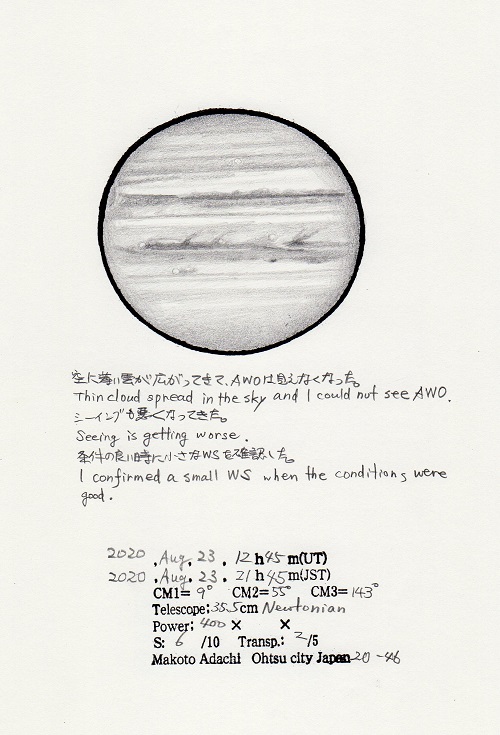 空に薄い雲が広がってきて、AWOは見えなくなった。
Thin cloud spread in the sky and I could not see AWO.
シーイングも悪くなってきた。
Seeing is getting worse.
条件の良い時に小さなWSを確認した。
I confirmed a small WS when the conditions were
good.
2020 . Aug. 23 . 12 h 45 m(UT)
2020 . Aug. 23 . 21 h 45 m(JST)
CM1= 9° CM2= 55° CM3= 143°
Telescope: 35.5cm Newtonian
Power: 400 × ×
S: 6 /10 Transp.: 2/5
Makoto Adachi Ohtsu city Japan 20-46